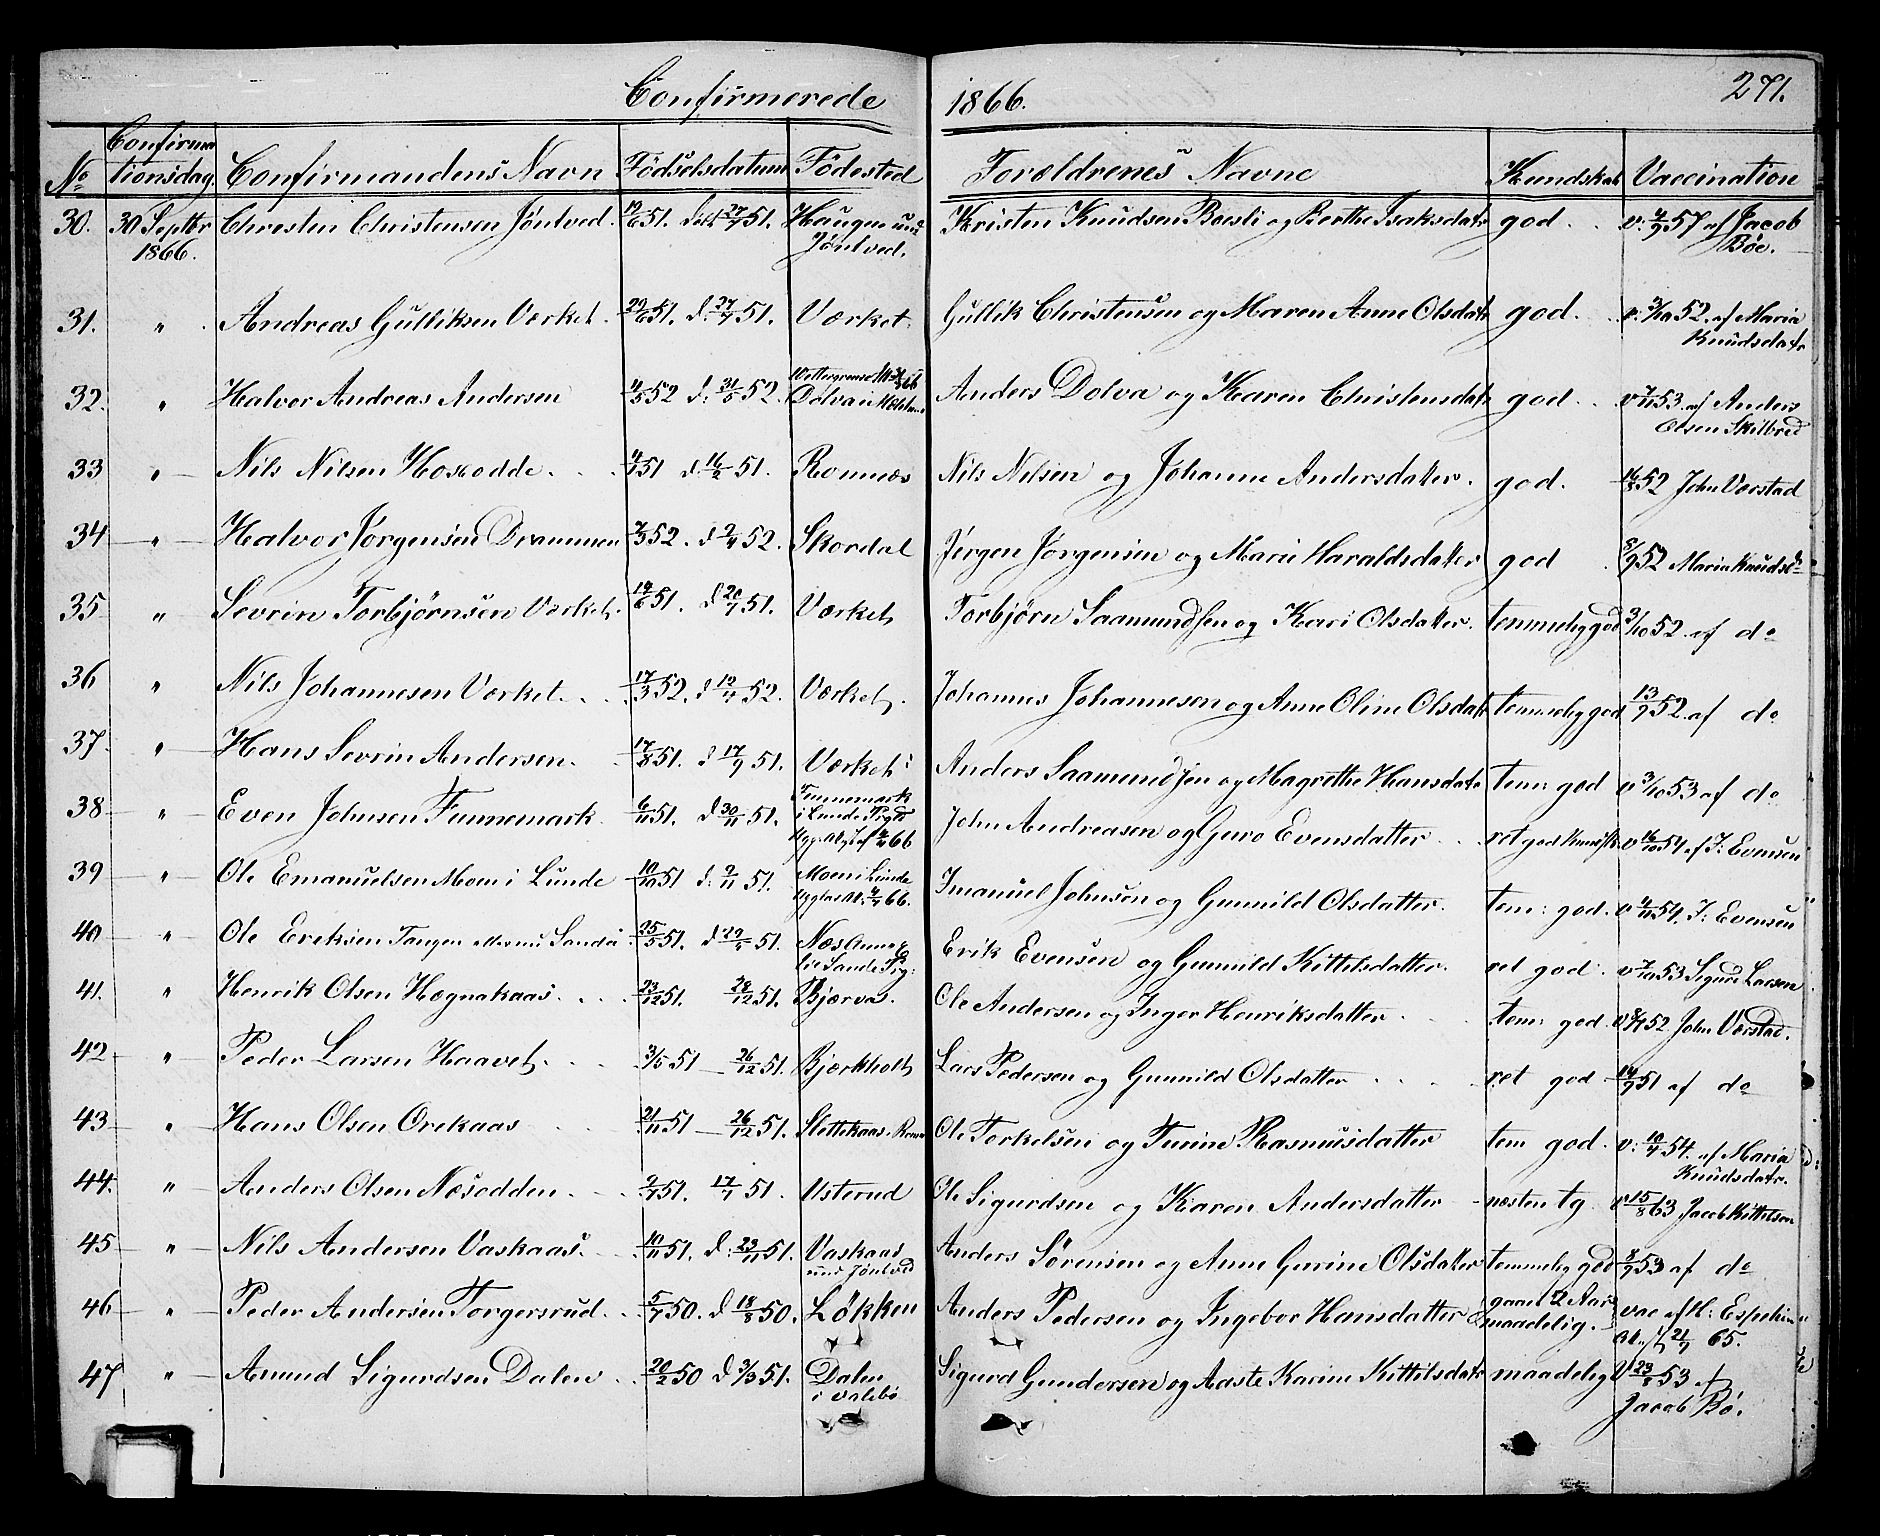 Confirmerede 1866. 271.
No Confirmationsdag Confirmandens Navn Födselsdatum Födested Forældrenes Navne Kundskab Vaccination
30. 30 Septbr 1866. Chresten Christensen Jöntved. 19/6 51. döbt 27/7 51. Haugen und Jöntved. Kristen Knudsen Boesli og Berthe Isaksdatr god. v: 4/9 57 af Jacob Böe.
31. " Andreas Gulliksen Værket. 29/6 51. d: 27/7 51. Værket. Gullik Christensen og Maren Anne Olsdatr god. v: 3/10 52. af Maria Knudsdatr
32. " Halvor Andreas Andersen 4/5 52 d: 31/5 52. Dolva i Melum Anders Dolva og Karen Christensdatr god. v 7/11 53. af Anders Olsen Skilbred
33 " Nils Nilsen Hosodde. 4/1 51 d. 16/2 51. Romnæs Nils Nilsen og Johanne Andersdatter. god. 16/8 52 John Værstad
34 " Halvor Jörgensen Drammen 7/3 52. d 9/4 52. Skordal Jörgen Jörgensen og Mari Haraldsdatter god 8/9 52 Maria Knudsd
35 " Sevrin Torbjörnsen Værket. 14/6 51. d 20/7 51. Værket Torbjörn Saamundsen og Kari Olsdatter. temmelig god 3/10 52. af do
36 " Nils Johannesen Værket. 17/3 52. d 12/4 52. Værket. Johannes Johannesen og Anne Oline Olsdatr temmelig god 13/9 52. af do
37. " Hans Sevrin Andersen. 17/8 51. d 17/9 51. Værket Anders Saamundsen og Magrethe Hansdatr tem: god v 3/10 53 af do
38 " Even Johnsen Finnemark 6/11 51. d 30/11 51. Finnemark i Lunde Prgd 66 John Andreasen og Guro Evensdatter. ret god Kundsk v 16/10 54 af J: Evensen
39 " Ole Emanuelsen Moen i Lunde 10/10 51 d: 9/11 51. Moen i Lunde 66. Imanuel Johnsen og Gunnild Olsdatter. tem: god. v 4/11 54. J: Evensen
40 " Ole Eriksen Tangen 25/5 51. d 29/5 51. Næs Erik Evensen og Gunnild Kittelsdatter. ret god. v 7/10 53 Sigurd Larsen
41. " Henrik Olsen Hægnakaas. 23/12 51. 28/12 51. Bjærvas. Ole Andersen og Inger Henriksdatter tem: god. v 8/7 52 John Værstad.
42 " Peder Larsen Haavet. 3/5 51 26/12 51. Bjerkholt Lars Pedersen og Gunnild Olsdatter ret god 14/9 51 af do
43 " Hans Olsen Orekaas 21/11 51 26/12 51. Slettekaas. Ole Torkelsen og Turine Rasmusdatter tem god. v: 10/7 54. af Maria Knudsdatr.
44. " Anders Olsen Næsodden. 9/7 51. 17/7 51. Usterud Ole Sigurdsen og Karen Andersdatter næsten tg v 15/8 63 Jacob Kittelsen
45 " Nils Andersen Vaskaas. 10/11 51. d: 23/11 51. Vaskaas und Jöntved Anders Sörensen og Anne Gurine Olsdatter temmelig god 8/9 53 af do
46 " Peder Andersen Torgersrud. 5/7 50. d 18/8 50. Lökken Anders Pedersen og Ingebor Hansdatter maadelig. vac af 21/7 65.
47 " Amund Sigurdsen Dalen 20/2 50 d 3/3 51. Dalen i Valebö Sigurd Gundersen og Aaste Karine Kittilsdatr maadelig v 23/8 53 af Jacob Bö.